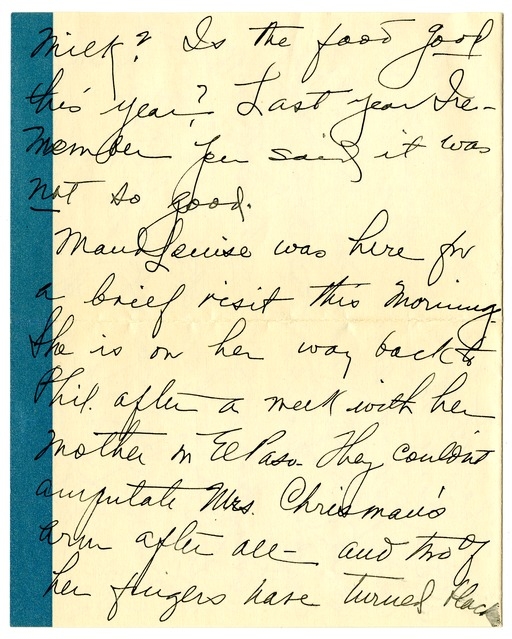 Milk? Is the food good
this year? Last year I re-
member you said it was
not so good.
Maud Louise was here for
a brief visit this morning.
She is on her way back to
Phil. after a week with her
mother in El Paso. They couldn't
amputate Mrs. Chrisman's
arm after all - and two of
her fingers have turned black